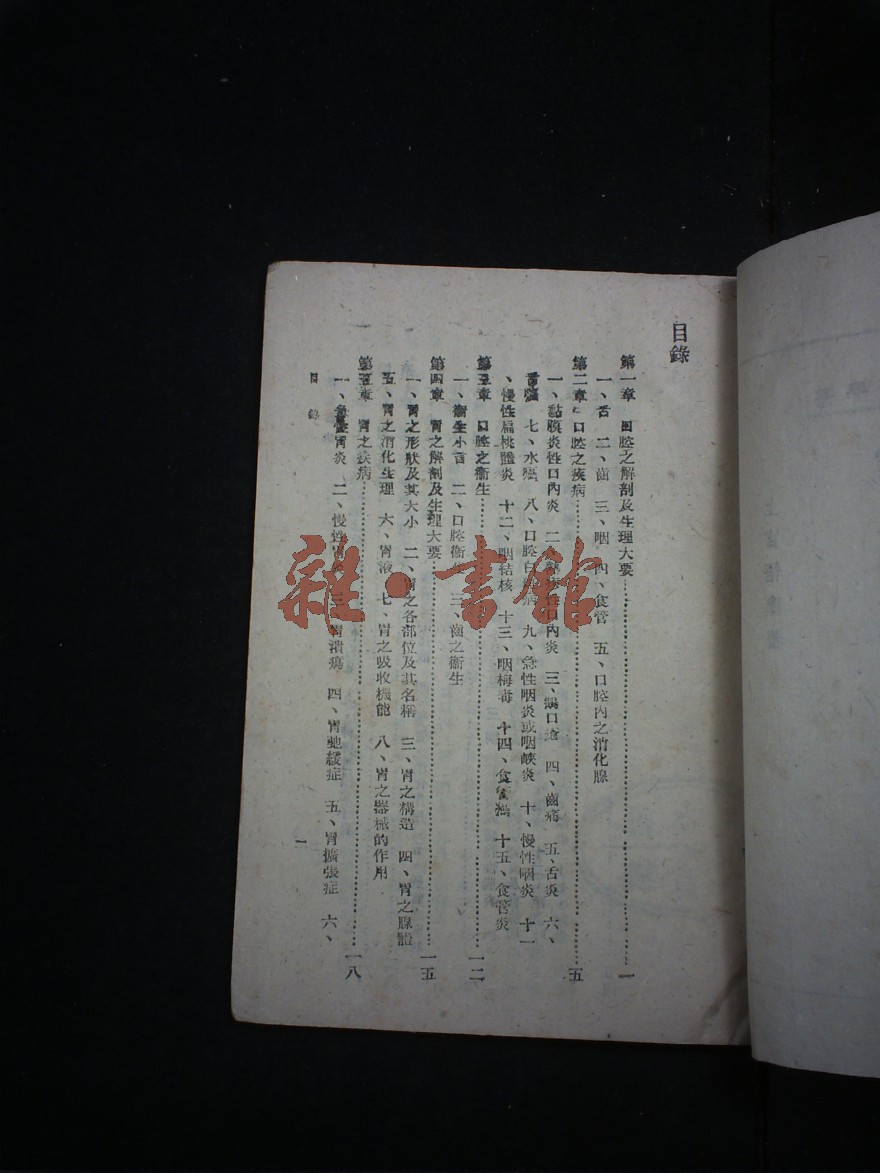 目錄
第一章 口腔之解剖及生理大要……一
一、舌 二、齒 三、咽 四、食管 五、口腔內之消化腺
第二章 口腔之疾病……五
一、黏膜炎性口內炎 二、性口內炎 三、鵝口瘡 四、齒痛 五、舌炎 六、
舌癌 七、水癌 八、口腔白病 九、急性咽炎或咽峽炎 十、慢性咽炎 十一
、慢性扁桃體炎 十二、咽結核 十三、咽梅毒 十四、食管癌 十五、食管炎
第三章 口腔之衞生……一二
一、衞生小言 二、口腔衞生 三、齒之衞生
第四章 胃之解剖及生理大要……一五
一、胃之形狀及其大小 二、胃之各部位及其名稱 三、胃之構造 四、胃之腺體
五、胃之消化生理 六、胃液 七、胃之吸收機能 八、胃之器械的作用
第五章 胃之疾病……一八
一、急性胃炎 二、慢性胃 三、胃潰瘍 四、胃弛緩症 五、胃擴張症 六、
目 錄 一
雜·書館